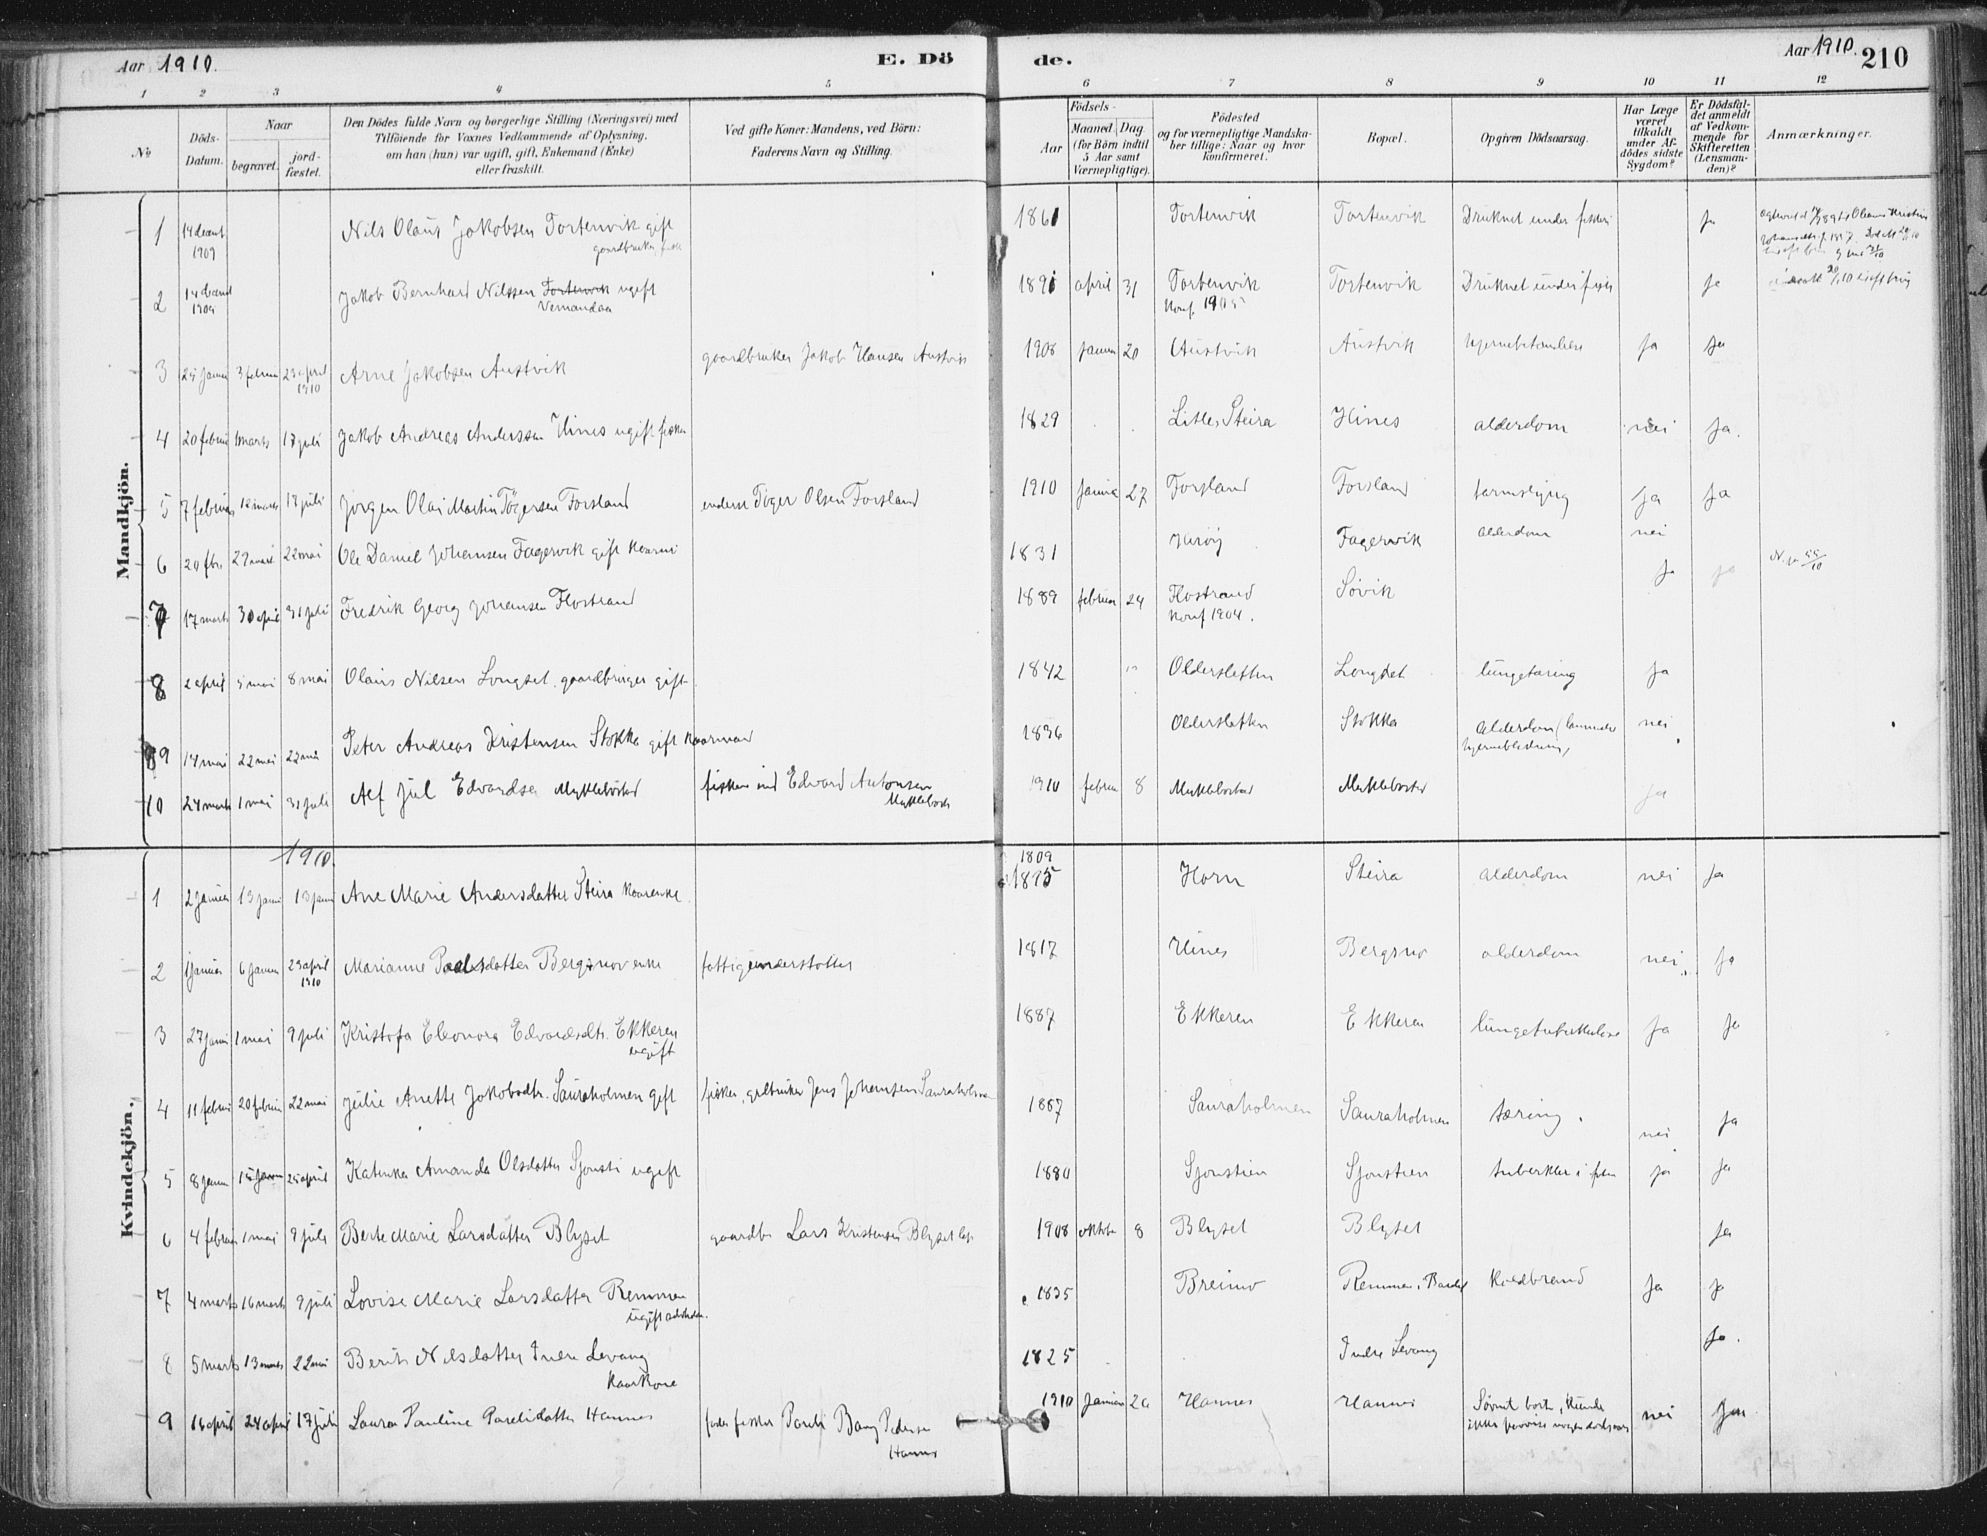 Aar 1910.
E. Dö
de.
Aar 1910.
210
1 2 3 4 5 6 7 8 9 10 11 12
No
Döds-Datum.
Naar
begravet.
jord-fæstet.
Den Dödes fulde Navn og borgerlige Stilling (Næringsvei) med
Tilföiende for Voxnes Vedkommende af Oplysning,
om han (hun) var ugift, gift, Enkemand (Enke)
eller fraskilt.
Ved gifte Koner: Mandens, ved Börn:
Faderens Navn og Stilling.
Födsels-
Aar
Maaned. Dag.
(for Börn indtil
5 Aar samt
Værnepligtige).
Födested
og for værnepligtige Mandska-
ber tillige: Naar og hvor
konfirmeret.
Bopæl.
Opgiven Dödsaarsag.
Har Læge
været
tilkaldt
under Af-
dödes sidste
Sygdom?
Er Dödsfal-
det anmeldt
af Vedkom-
mende for
Skifteretten
(Lensman-
den)?
Anmærkninger.
Mandkjön.
1 14 decemb 1909 Nils Olaus Jakobsen Tortenvik gift 1861 Tortenvik Tortenvik Druknet under fiskeri Ja
gaardbruker
2 14 decemb 1909 Jakob Bernhard Nilssen Tortenvik ugift 1891 april 31 Tortenvik Tortenvik Druknet under fiskeri Ja
Vernandaa Konf. 1905
3 25 januar 3 februar 23 april 1910 Arne Jakobsen Austvik gaardbruker Jakob Hansen Austvik 1908 januar 20 Austvik Austvik Ja Ja
4 20 februar 1 marts 17 juli Jakob Andreas Anderssen Hines ugift fisker 1829 Litle Steira Hines alderdom nei Ja.
5 7 februar 18 marts 17 juli Jørgen Olai Martin Tøgersen Forsland Tøger Olsen Forsland 1910 Januar 27 Forsland Forsland Ja Ja
6 20 fbr. 22 mai Ole Daniel Johansen Fagervik gift 1831 Herøy Fagervik alderdom nei
7 17 marts 30 april 31 juli Fredrik Georg Johansen Flostrand 1889 februar 24 Flostrand Søvik Ja Ja
Konf 1904.
8 2 april 5 mai 8 mai Olaus Nilsen Longset. gaardbruger gift 1842 Oldersletten Longset lungetæring Ja
9 14 mai 22 mai 22 mai Peter Andreas Kristensen Stokka gift kaarmand 1836 Oldersletten Stokka alderdom nei
10 24 marts 1 mai 31 juli Alf Jul Edvardsen Myklebostad fisker Edvard Antonsen 1910 februar 8 Myklebostad Myklebostad Ja
Kvindekjön.
1910.
1809
1 2 januar 13 januar 13 januar Ane Marie Andersdatter Steira kaarenke 1815 Horn Steira alderdom nei Ja
2 1 januar 6 januar 23 april 1910 Marianne Paalsdatter Bergsnov enke fattigunderstøttet 1817 Hines Bergsnov alderdom nei Ja
3 27 januar 1 mai 9 juli Kristofa Eleonora Edvardsdtr. Ekkeren 1887 Ekkeren Ekkeren lungetuberkulose Ja Ja
ugift
4 11 februar 20 februar 22 mai Julie Anette Jakobsdtr. Sauraholmen gift fisker, Jens Johansen Sauraholmen 1867 Sauraholmen Sauraholmen tæring. nei Ja
5 8 januar 15 januar 25 april Katinka Amanda Olsdatter Sjonsti ugift 1880 Sjonstien Sjonstien tuberkler i Ja Ja
6 4 februar 1 mai 9 juli Berte Marie Larsdatter Blyset gaardbr Lars Kristensen Blyset 1908 oktober 8 Blyset Blyset Ja
7 4 marts 16 marts 9 juli Lovise Marie Larsdatter Remmen 1835 Breimo Remmen koldbrand Ja Ja
ugift
8 5 marts 13 marts 22 mai Berit Nilsdatter Indre Levang 1825 Indre Levang Ja.
kaarkone
9 16 april 24 april 17 juli Laura Pauline Paulidatter Hannes fisker Pauli Bang Pedersen 1910 Januar 20 Hannes Hannes Søvnet bort, kunde nei Ja
Hannes